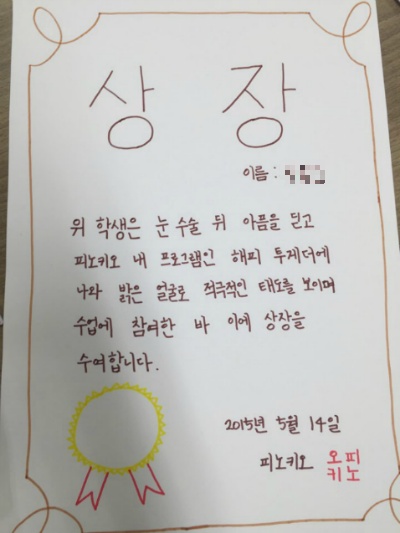 상 장
이름 :
위 학생은 눈 수술 뒤 아픔을 딛고
피노키오 내 프로그램인 해피 투게더에
나와 밝은 얼굴로 적극적인 태도를 보이며
수업에 참여한 바 이에 상장을
수여합니다.
2015년 5월 14일
피노키오 오피
키노